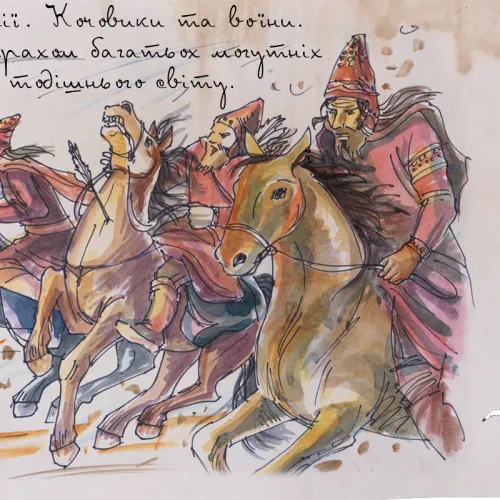 ії. Кочовики та воїни.
рахом багатьох могутніх
тодішнього світу.